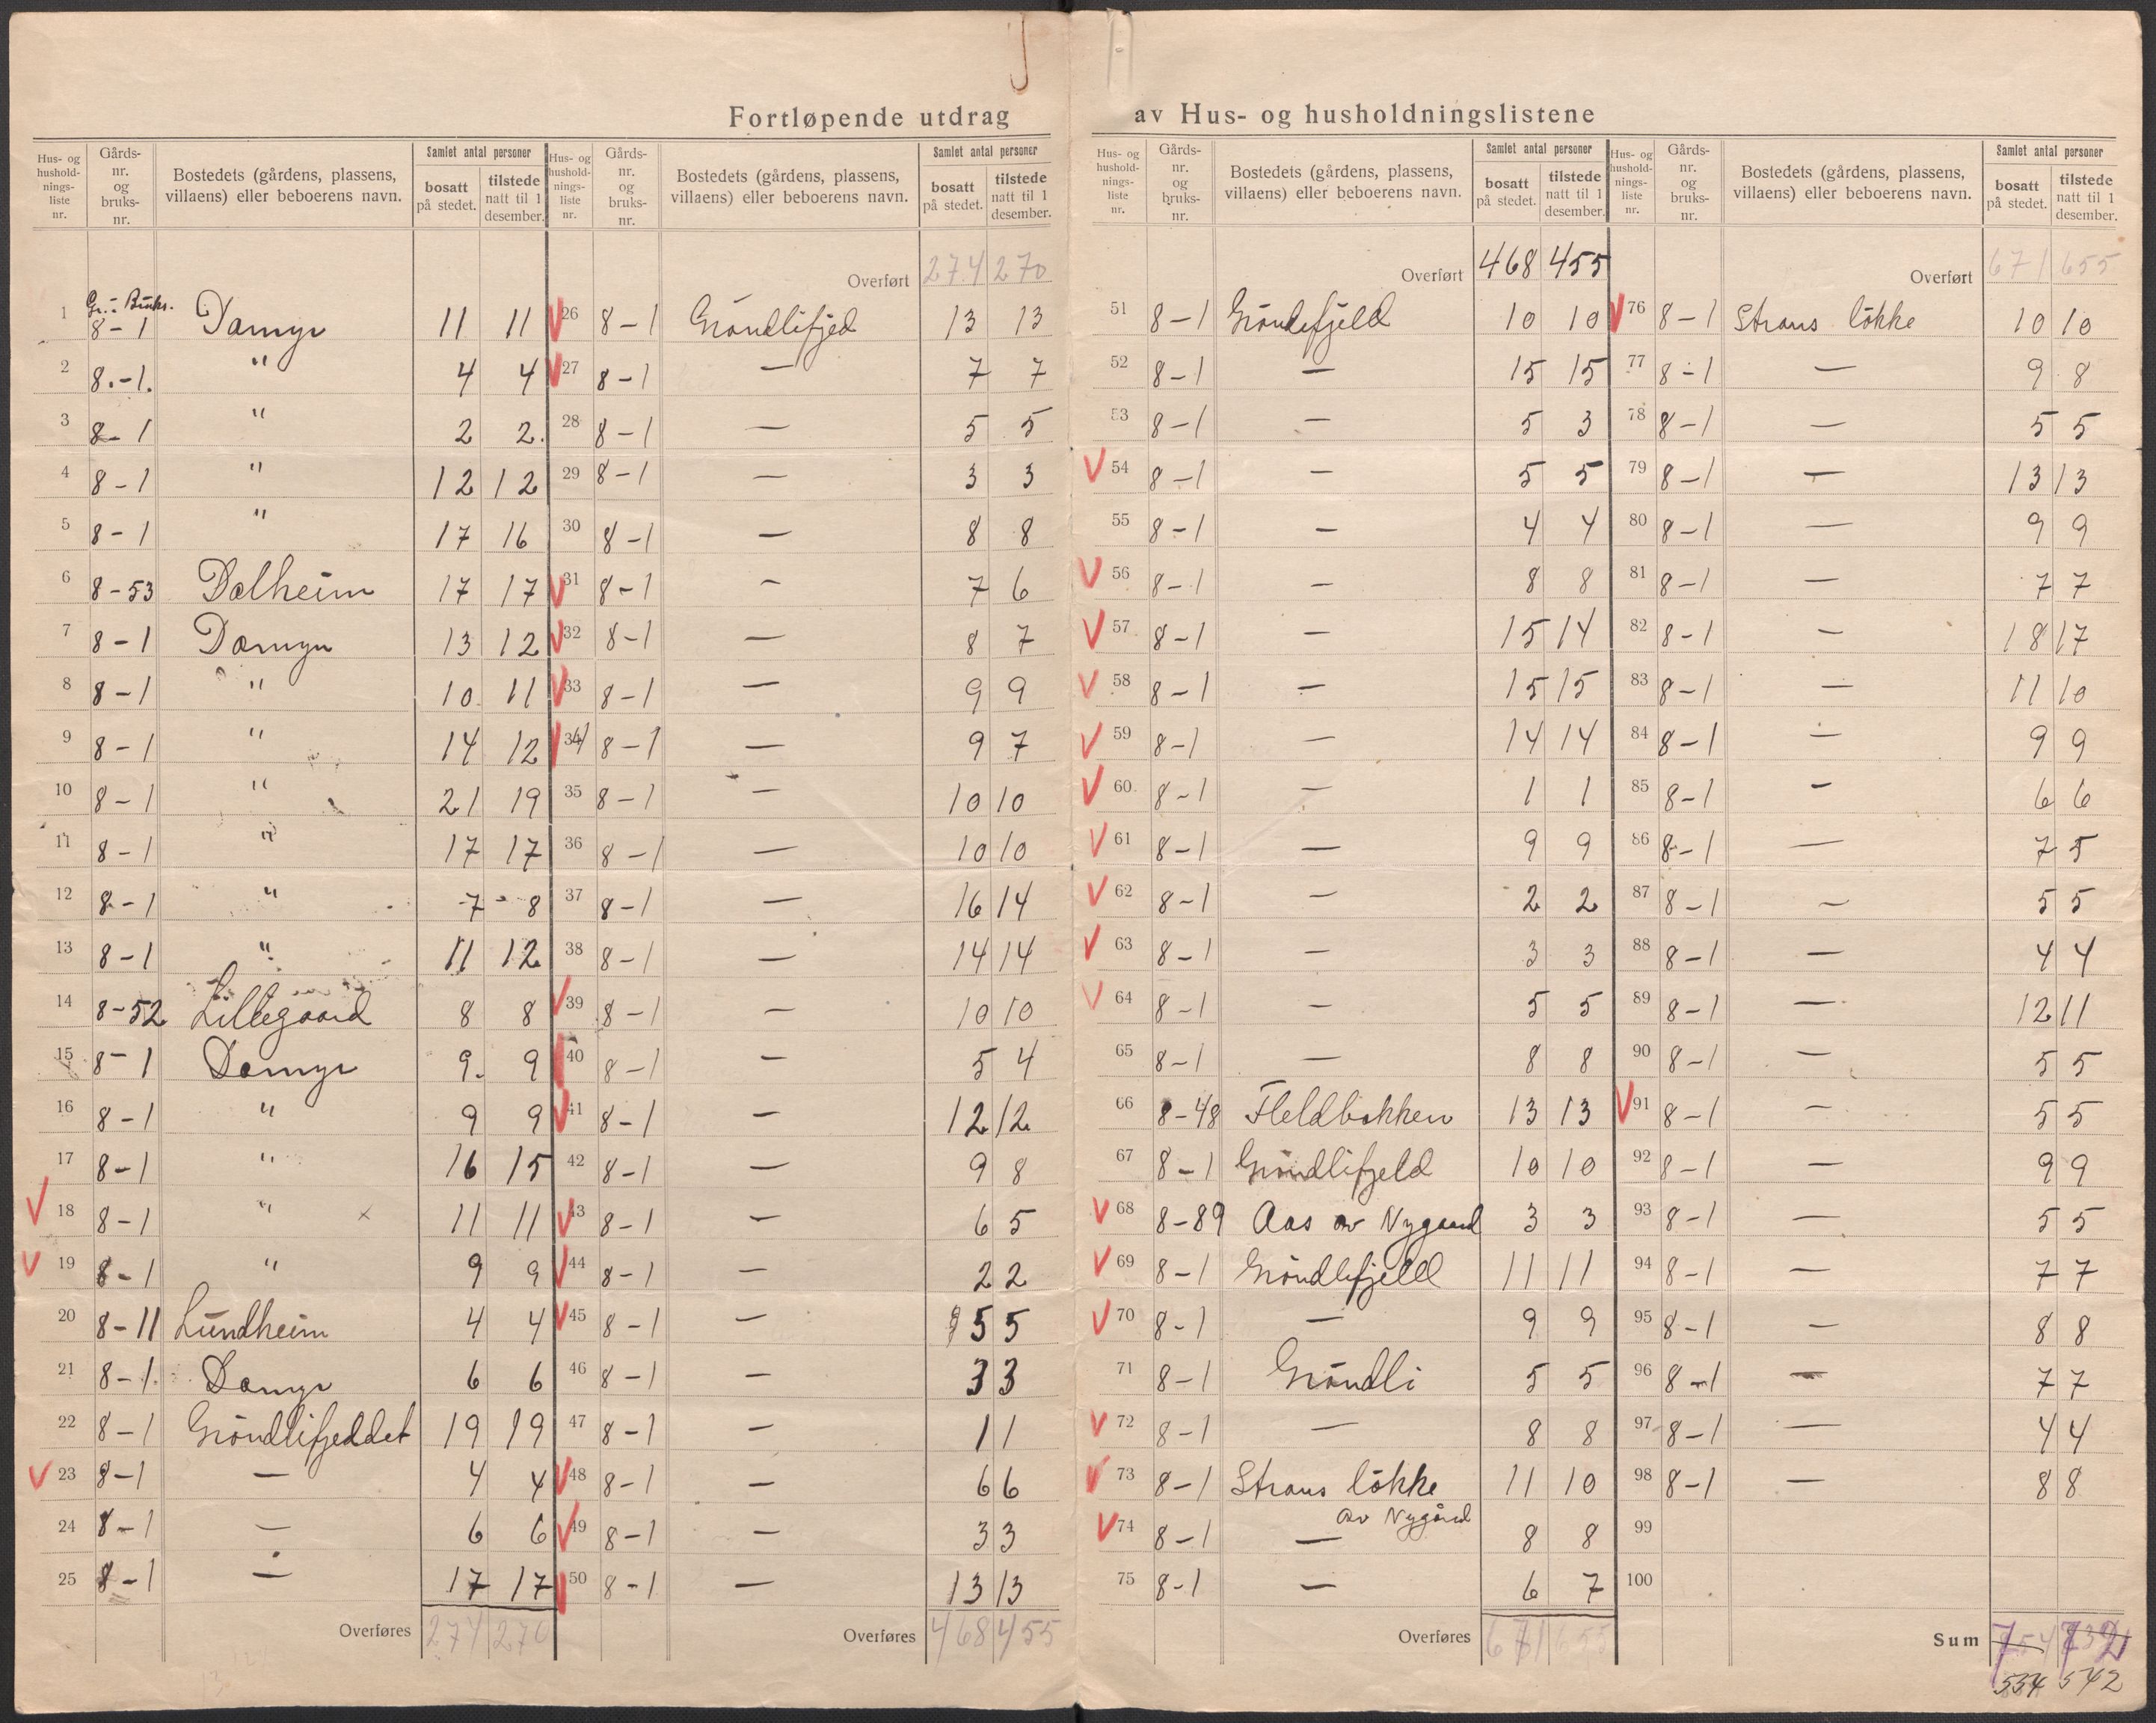 Fortløpende utdrag av Hus- og husholdningslistene
Hus- og hushold-nings-liste nr. Gårds-nr. og bruks-nr. Bostedets (gårdens, plassens, villaens) eller beboerens navn. Samlet antal personer bosatt på stedet. tilstede natt til 1 desember.
Gr.- Bruks.
1 8-1 Damyr 11 11
2 8.-1. " 4 4
3 8-1 " 2 2.
4 8-1 " 12 12
5 8-1 " 17 16
6 8-53 Dalheim 17 17
7 8-1 Damyr 13 12
8 8-1 " 10 11
9 8-1 " 14 12
10 8-1 " 21 19
11 8-1 " 17 17
12 8-1 " 7 8
13 8-1 " 11 12
14 8-52 Lillegaard 8 8
15 8-1 Damyr 9. 9
16 8-1 " 9 9
17 8-1 " 16 15
18 8-1 " x 11 11
19 8-1 " 9 9
20 8-11 Lundheim 4 4
21 8-1. Damyr 6 6
22 8-1 Gröndlifjeddet 19 19
23 8-1 — 4 4
24 8-1 — 6 6
25 8-1 — 17 17
Overføres 274 270
Hus- og hushold-nings-liste nr. Gårds-nr. og bruks-nr. Bostedets (gårdens, plassens, villaens) eller beboerens navn. Samlet antal personer bosatt på stedet. tilstede natt til 1 desember.
Overført 274 270
26 8-1 Gröndlifjed 13 13
27 8-1 — 7 7
28 8-1 — 5 5
29 8-1 — 3 3
30 8-1 — 8 8
31 8-1 — 7 6
32 8-1 — 8 7
33 8-1 — 9 9
34 8-1 — 9 7
35 8-1 — 10 10
36 8-1 — 10 10
37 8-1 — 16 14
38 8-1 — 14 14
39 8-1 — 10 10
40 8-1 — 5 4
41 8-1 — 12 12
42 8-1 — 9 8
43 8-1 — 6 5
44 8-1 — 2 2
45 8-1 — 5 5
46 8-1 — 3 3
47 8-1 — 1 1
48 8-1 — 6 6
49 8-1 — 3 3
50 8-1 — 13 13
Overføres 468 455
Hus- og hushold-nings-liste nr. Gårds-nr. og bruks-nr. Bostedets (gårdens, plassens, villaens) eller beboerens navn. Samlet antal personer bosatt på stedet. tilstede natt til 1 desember.
Overført 468 455
51 8-1 Gröndefjeld 10 10
52 8-1 — 15 15
53 8-1 — 5 3
54 8-1 — 5 5
55 8-1 — 4 4
56 8-1 — 8 8
57 8-1 — 15 14
58 8-1 — 15 15
59 8-1 — 14 14
60. 8-1 — 1 1
61 8-1 — 9 9
62 8-1 — 2 2
63 8-1 — 3 3
64 8-1 — 5 5
65 8-1 — 8 8
66 8-48 Fleldbakken 13 13
67 8-1 Gröndlifjeld 10 10
68 8-89 Aas av Nygaard 3 3
69 8-1 Gröndlifjeld 11 11
70 8-1 — 9 9
71 8-1 Gröndli 5 5
72 8-1 — 8 8
73 8-1 Straus lökke 11 10
av Nygård
74 8-1 — 8 8
75 8-1 — 6 7
Overføres 671 655
Hus- og hushold-nings-liste nr. Gårds-nr. og bruks-nr. Bostedets (gårdens, plassens, villaens) eller beboerens navn. Samlet antal personer bosatt på stedet. tilstede natt til 1 desember.
Overført 671 655
76 8-1 Straus lökke 10 10
77 8-1 — 9 8
78 8-1 — 5 5
79 8-1 — 13 13
80 8-1 — 9 9
81 8-1 — 7 7
82 8-1 — 18 17
83 8-1 — 11 10
84 8-1 — 9 9
85 8-1 — 6 6
86 8-1 — 7 5
87 8-1 — 5 5
88 8-1 — 4 4
89 8-1 — 12 11
90 8-1 — 5 5
91 8-1 — 5 5
92 8-1 — 9 9
93 8-1 — 5 5
94 8-1 — 7 7
95 8-1 — 8 8
96 8-1 — 7 7
97 8-1 — 4 4
98 8-1 — 8 8
99
100
Sum
534 542